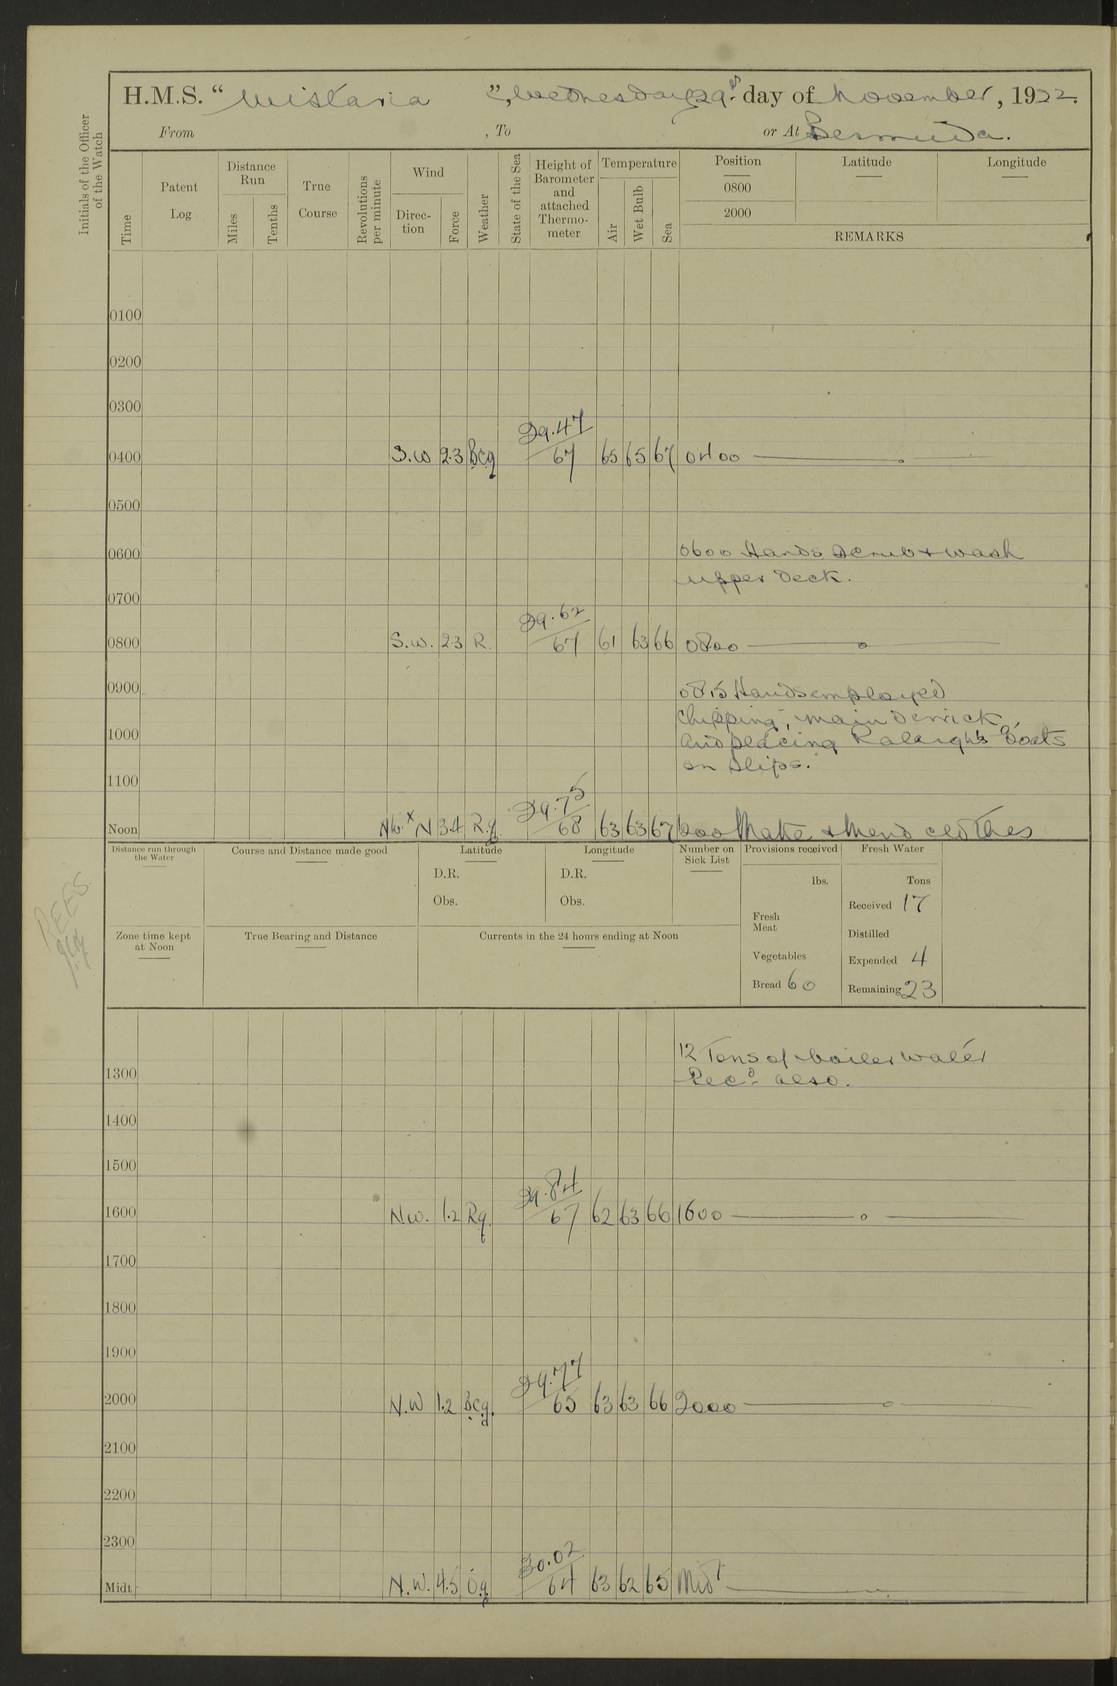 H.M.S. “ Wistaria ”, Wednesday 29th day of November, 1922.
From , To or At Bermuda.
Initials of the Officer of the Watch
Time
Patent Log
Distance Run
Miles
Tenths
True Course
Revolutions per minute
Wind
Direction
Force
Weather
State of the Sea
Height of Barometer and attached Thermometer
Temperature
Air
Wet Bulb
Sea
Position Latitude Longitude
0800
2000
REMARKS
0100
0200
0300
29.47
0400 S.W 2.3 Bcq 67 65 65 67 0400
0500
0600 0600 Hands scrub & wash
upper deck.
0700
29.62
0800 S.W. 2.3 R. 67 61 63 66 0800
0900 0815 Hands employed
chipping, main derrick,
1000 and placing Raleigh's boats
on slips.
1100
29.75
Noon NW x N 3.4 R.q. 68 63 63 67 1200 Make & Mend clothes
Distance run through the Water
Course and Distance made good
Latitude
D.R.
Obs.
Longitude
D.R.
Obs.
Number on Sick List
Provisions received
lbs.
Fresh Meat
Vegetables
Bread 60
Fresh Water
Tons
Received 17
Distilled
Expended 4
Remaining 23
Zone time kept at Noon
True Bearing and Distance
Currents in the 24 hours ending at Noon
12 Tons of boiler water
1300 Recd also.
1400
1500
29.84
1600 N.W. 1.2 Rq. 67 62 63 66 1600
1700
1800
1900
29.77
2000 N.W 1.2 Bcq. 65 63 63 66 2000
2100
2200
2300
30.02
Midt. N.W. 4.5 O.q 64 63 62 65 Midt